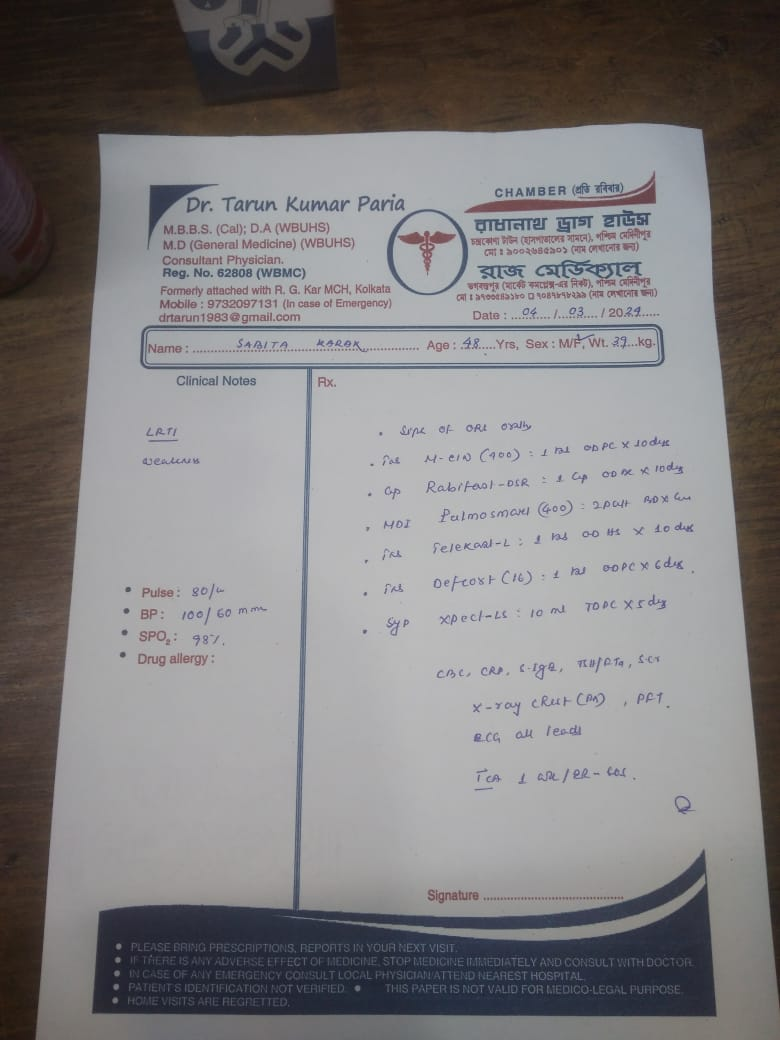 Dr. Tarun Kumar Paria
M.B.B.S. (Cal); D.A (WBUHS)
M.D (General Medicine) (WBUHS)
Consultant Physician.
Reg. No. 62808 (WBMC)
Formerly attached with R. G. Kar MCH, Kolkata
Mobile : 9732097131 (In case of Emergency)
drtarun1983@gmail.com
CHAMBER (প্রতি রবিবার)
রাধানাথ ড্রাগ হাউস
চন্দ্রকোণা টাউন (হাসপাতালের সামনে), পশ্চিম মেদিনীপুর
মো : ৯০০২৬৪৫৯০১ (নাম লেখানোর জন্য)
রাজ মেডিক্যাল
ভগবন্তপুর (মার্কেট কমপ্লেক্স-এর নিকট), পশ্চিম মেদিনীপুর
(নাম লেখানোর জন্য)
Date : 04 / 03 / 2024
Name : SABITA KARAK Age : 48 Yrs, Sex : M/F, Wt. 39 kg.
Clinical Notes
LRTI
weakness
Pulse : 80/
BP : 100/60 mm
SPO₂ : 98%
Drug allergy :
Rx.
of ORS orally
Tab M-CIN (400) : 1 tab ODPC X 10 days
Cap Rabifast-DSR : 1 Cap X 10 days
MDI (400) : 2 puff BD X
Tab Telekast-L : 1 tab OD HS X 10 days
Tab Defcort (16) : 1 tab ODPC X 6 days
Syp Xpect-LS : 10 ml TDPC X 5 days
CBC, CRP, S-IgE, S.Cr
X-ray Chest (PA), PFT
ECG all leads
1
Signature
PLEASE BRING PRESCRIPTIONS, REPORTS IN YOUR NEXT VISIT.
IF THERE IS ANY ADVERSE EFFECT OF MEDICINE, STOP MEDICINE IMMEDIATELY AND CONSULT WITH DOCTOR.
IN CASE OF ANY EMERGENCY CONSULT LOCAL PHYSICIAN/ATTEND NEAREST HOSPITAL.
PATIENT'S IDENTIFICATION NOT VERIFIED. ● THIS PAPER IS NOT VALID FOR MEDICO-LEGAL PURPOSE.
HOME VISITS ARE REGRETTED.